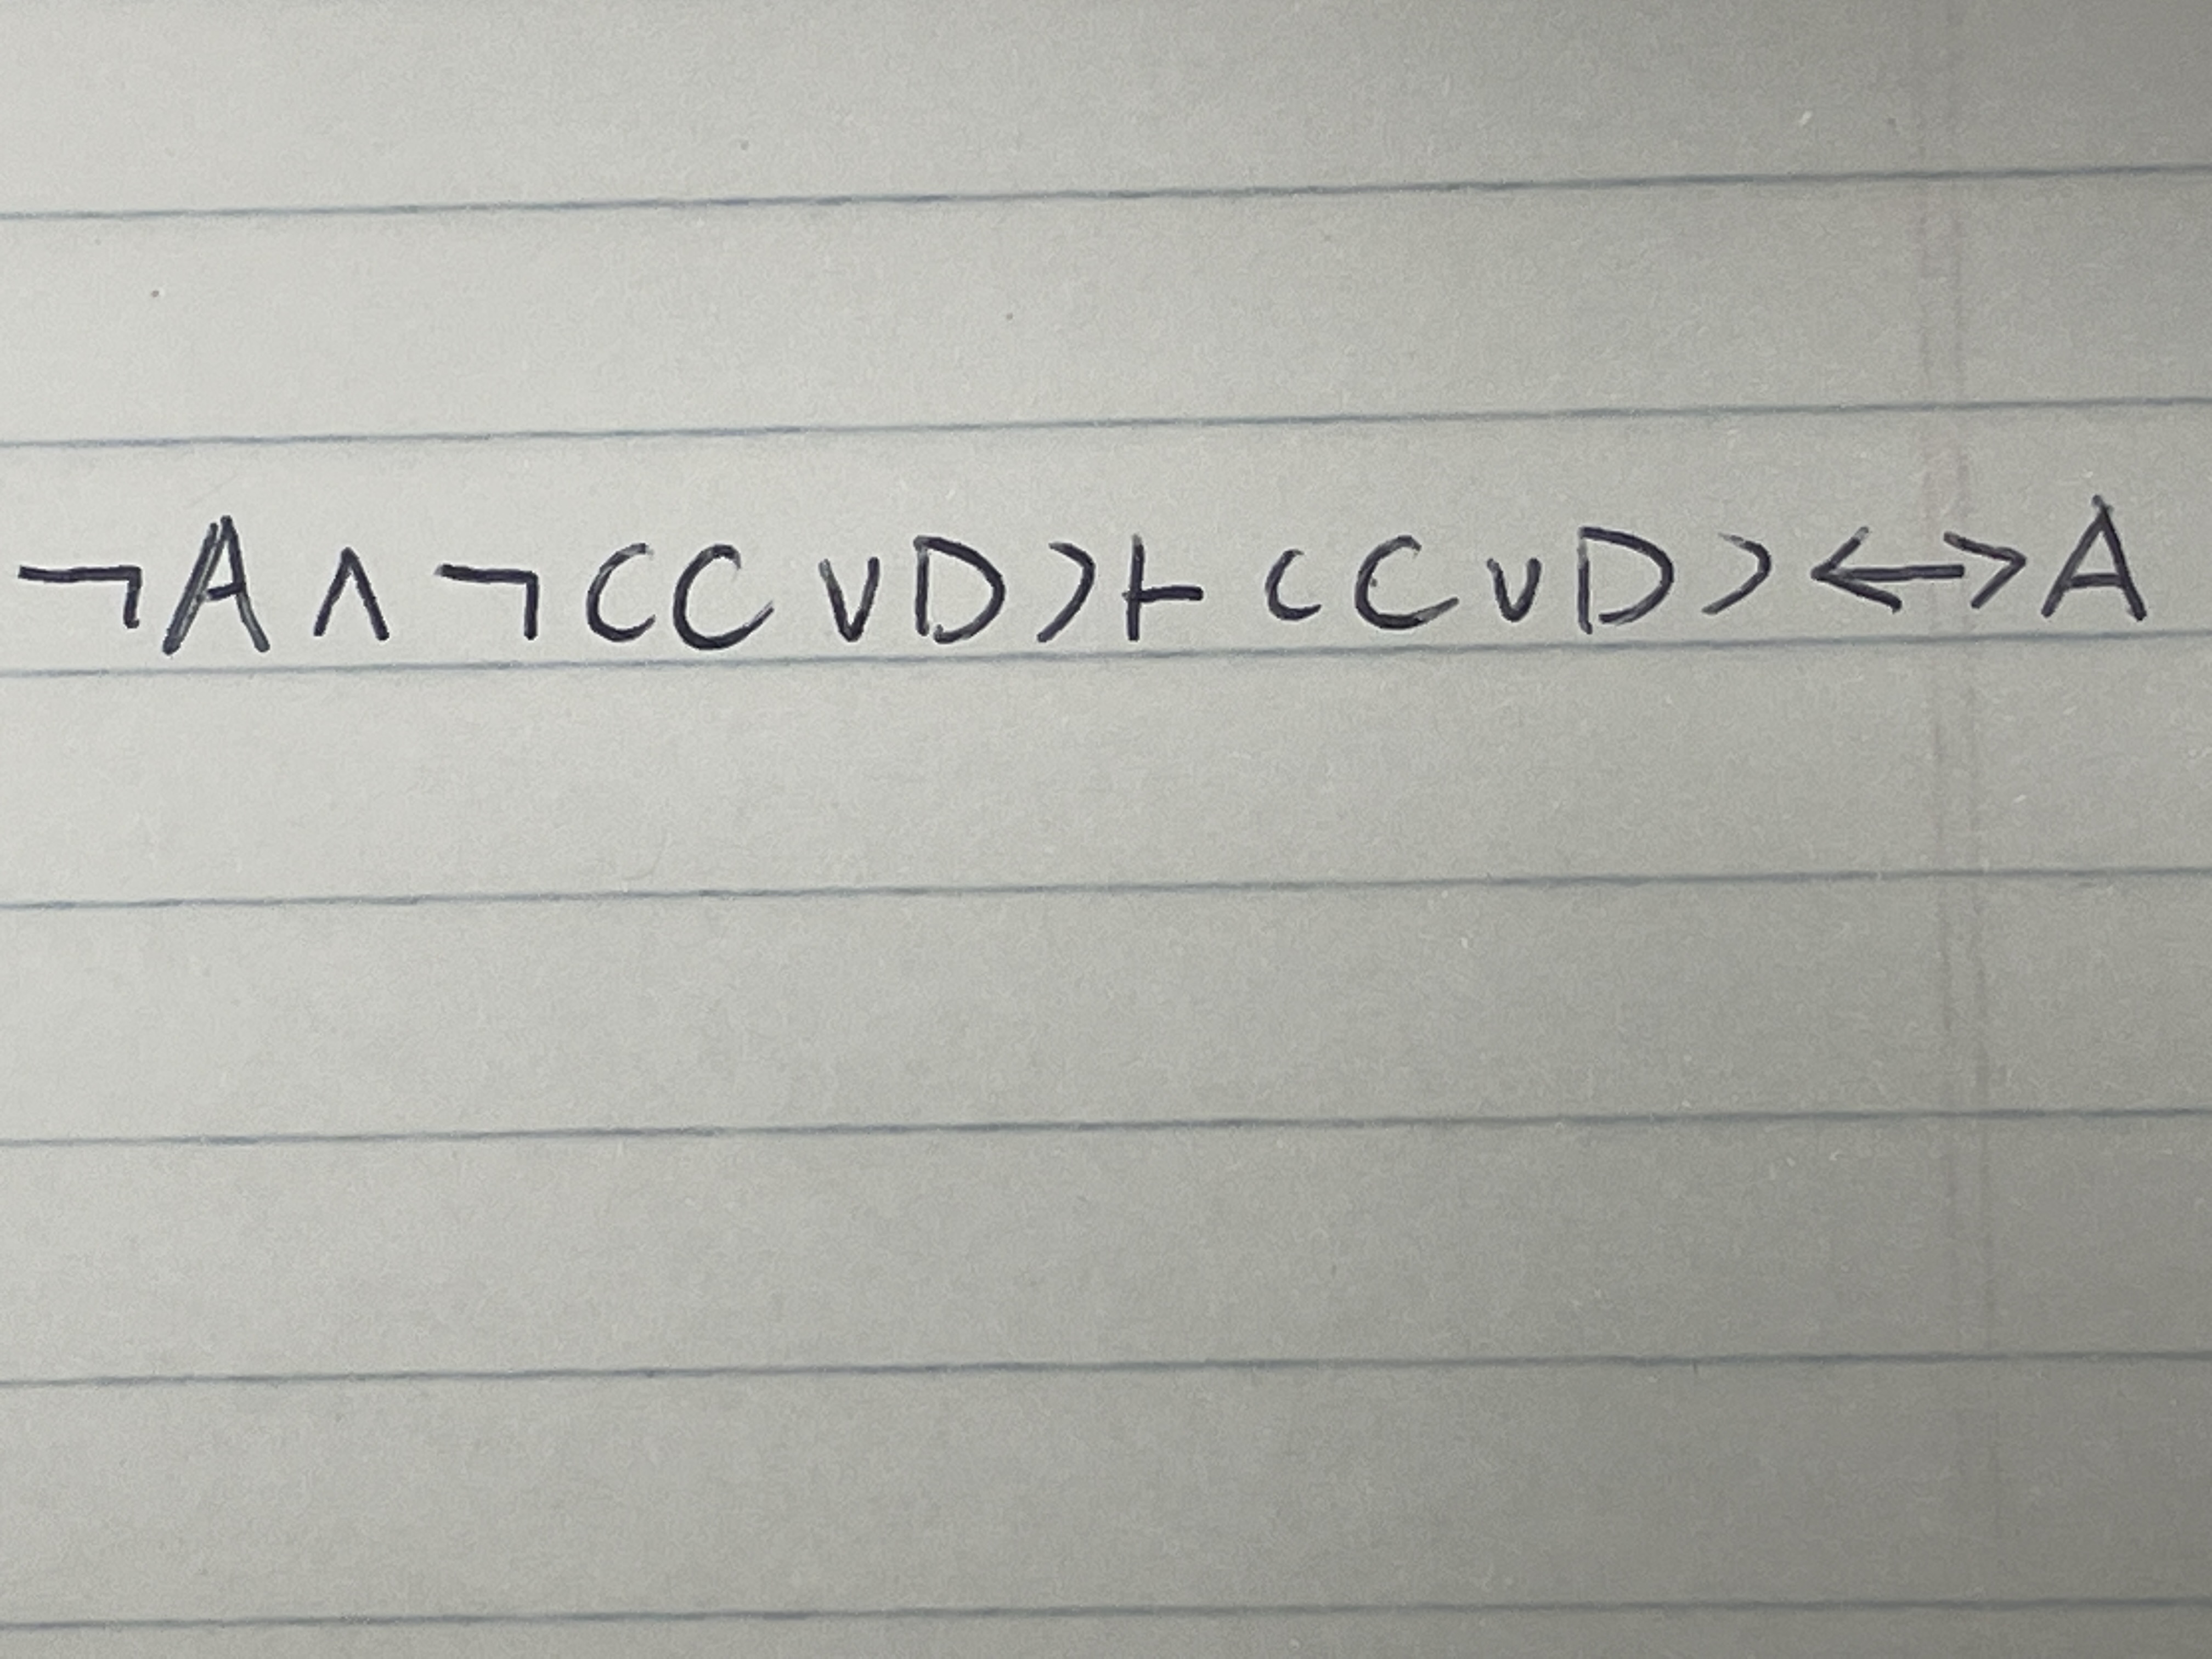 ¬A ∧ ¬(C ∨ D) ⊢ (C ∨ D) ↔ A